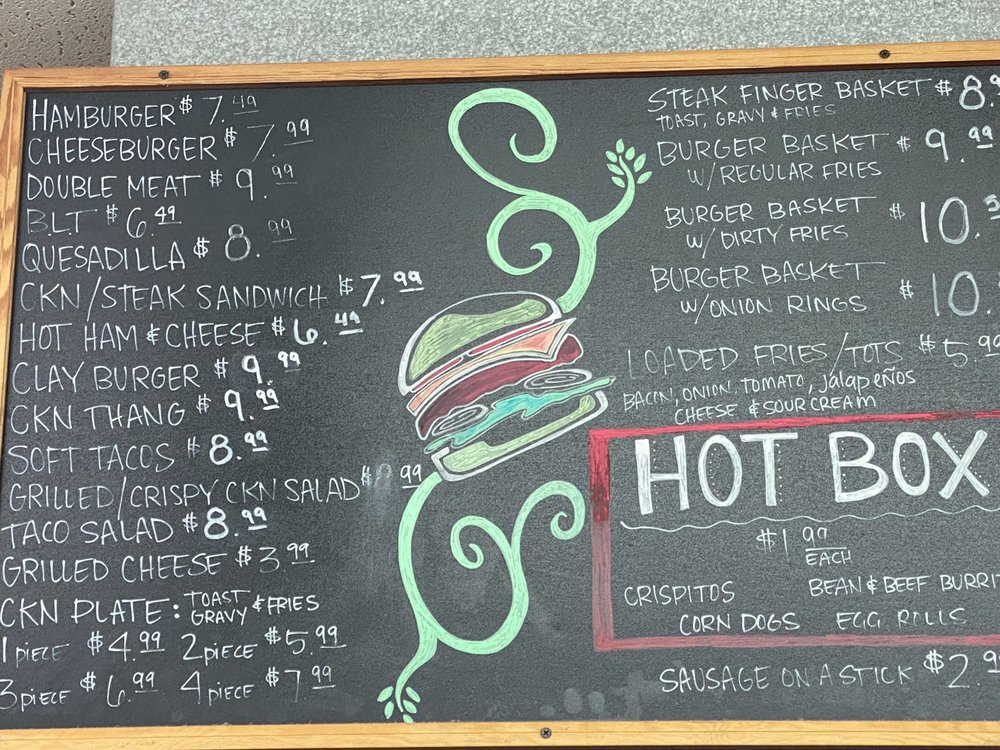 HAMBURGER $7.49
CHEESEBURGER $7.99
DOUBLE MEAT $9.99
BLT $6.49
QUESADILLA $8.99
CKN/STEAK SANDWICH $7.99
HOT HAM & CHEESE $6.49
CLAY BURGER $9.99
CKN THANG $9.99
SOFT TACOS $8.99
GRILLED/CRISPY CKN SALAD $8.99
TACO SALAD $8.99
GRILLED CHEESE $3.99
CKN PLATE: TOAST GRAVY & FRIES
1 PIECE $4.99 2 PIECE $5.99
3 PIECE $6.99 4 PIECE $7.99
STEAK FINGER BASKET $8.
TOAST, GRAVY & FRIES
BURGER BASKET $9.99
W/REGULAR FRIES
BURGER BASKET $10.
W/DIRTY FRIES
BURGER BASKET $10.
W/ONION RINGS
LOADED FRIES/TOTS $5.99
BACON, ONION, TOMATO, jalapeños
CHEESE & SOUR CREAM
HOT BOX
$1.99 EACH
CRISPITOS BEAN & BEEF BURRIT
CORN DOGS EGG ROLLS
SAUSAGE ON A STICK $2.9